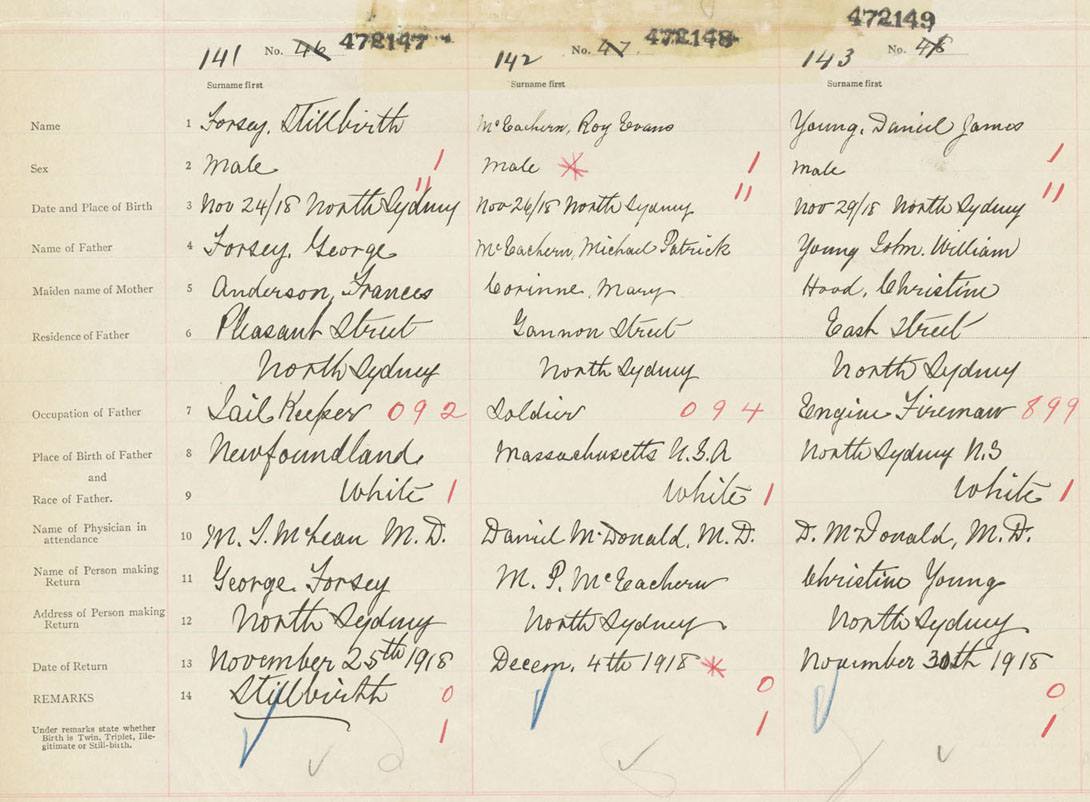 472149
141 No. 46 472147 142 No. 47 472148 143 No. 48
Surname first Surname first Surname first
Name 1 Forsey, Stillbirth McEachern, Roy Evans Young, Daniel James
Sex 2 Male 1 Male * 1 Male 1
Date and Place of Birth 3 Nov 24/18 North Sydney 11 Nov 26/18 North Sydney 11 Nov 29/18 North Sydney 11
Name of Father 4 Forsey, George McEachern, Michael Patrick Young John William
Maiden name of Mother 5 Anderson, Frances Corinne, Mary Hood, Christine
Residence of Father 6 Pleasant Street Gannon Street East Street
North Sydney North Sydney North Sydney
Occupation of Father 7 Keeper 092 Soldier 094 Engine Fireman 899
Place of Birth of Father 8 Newfoundland Massachusetts U.S.A North Sydney N.S
and
Race of Father. 9 White 1 White 1 White 1
Name of Physician in
attendance 10 M. McLean M.D. Daniel McDonald, M.D. D. McDonald, M.D.
Name of Person making
Return 11 George Forsey M. P. McEachern Christine Young
Address of Person making
Return 12 North Sydney North Sydney North Sydney
Date of Return 13 November 25th 1918 Decem. 4th 1918 * November 30th 1918
REMARKS 14 Stillbirth 0 0 0
Under remarks state whether
Birth is Twin, Triplet, Ille-
gitimate or Still-birth. 1 1 1